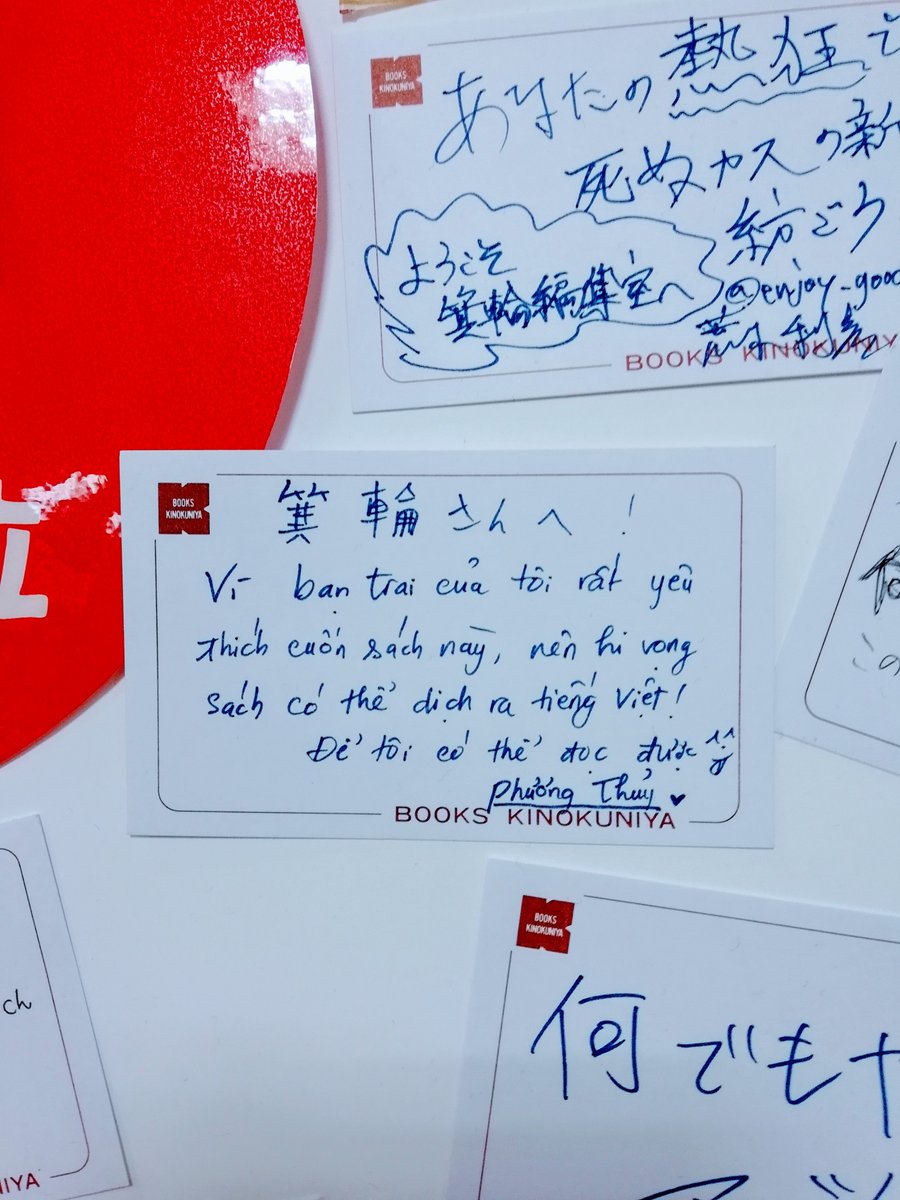 BOOKS
KINOKUNIYA
あなたの熱狂で
死ぬカスの新
紡ごう
ようこそ
箕輪編集室へ
@enjoy_good
BOOKS KINOKUNIYA
BOOKS
KINOKUNIYA
箕輪さんへ!
Vì bạn trai của tôi rất yêu
thích cuốn sách này, nên hi vọng
sách có thể dịch ra tiếng Việt!
Để tôi có thể đọc được ^^
Phương Thủy ♥
BOOKS KINOKUNIYA
この
ch
NIYA
BOOKS
KINOKUNIYA
何でもや